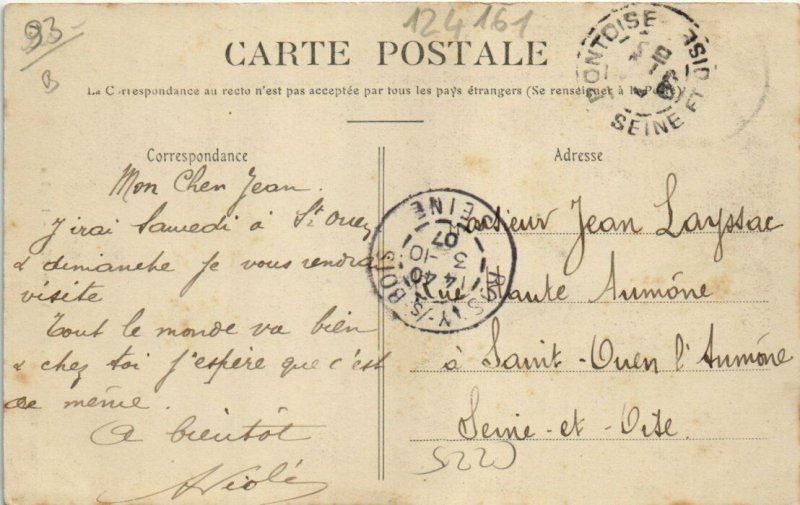 93-
B
124161
CARTE POSTALE
La Correspondance au recto n'est pas acceptée par tous les pays étrangers (Se renseigner à la Poste)
PONTOISE
SEINE ET OISE
Correspondance
Mon Cher Jean.
J'irai Samedi à St Ouen
& dimanche je vous rendrai
visite
Tout le monde va bien
& chez toi j'espère que c'est
de même.
A bientôt
Adresse
Monsieur Jean Layssac
Rue Haute Aumône
à Saint-Ouen l'Aumône
Seine-et-Oise.
ROSNY-S-BOIS
14 40
3 -10
07
SEINE